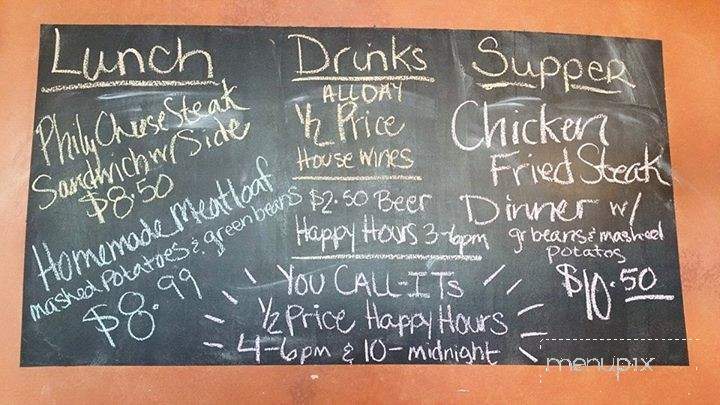 Lunch
Phily Cheese Steak
Sandwich w/ Side
$8.50
Homemade Meatloaf
mashed potatoes & green beans
$8.99
Drinks
ALL DAY
1/2 Price
House Wines
$2.50 Beer
Happy Hours 3-6pm
You CALL-ITs
1/2 Price Happy Hours
4-6pm & 10-midnight
Supper
Chicken
Fried Steak
Dinner w/
gr beans & mashed
potatos
$10.50
menupix